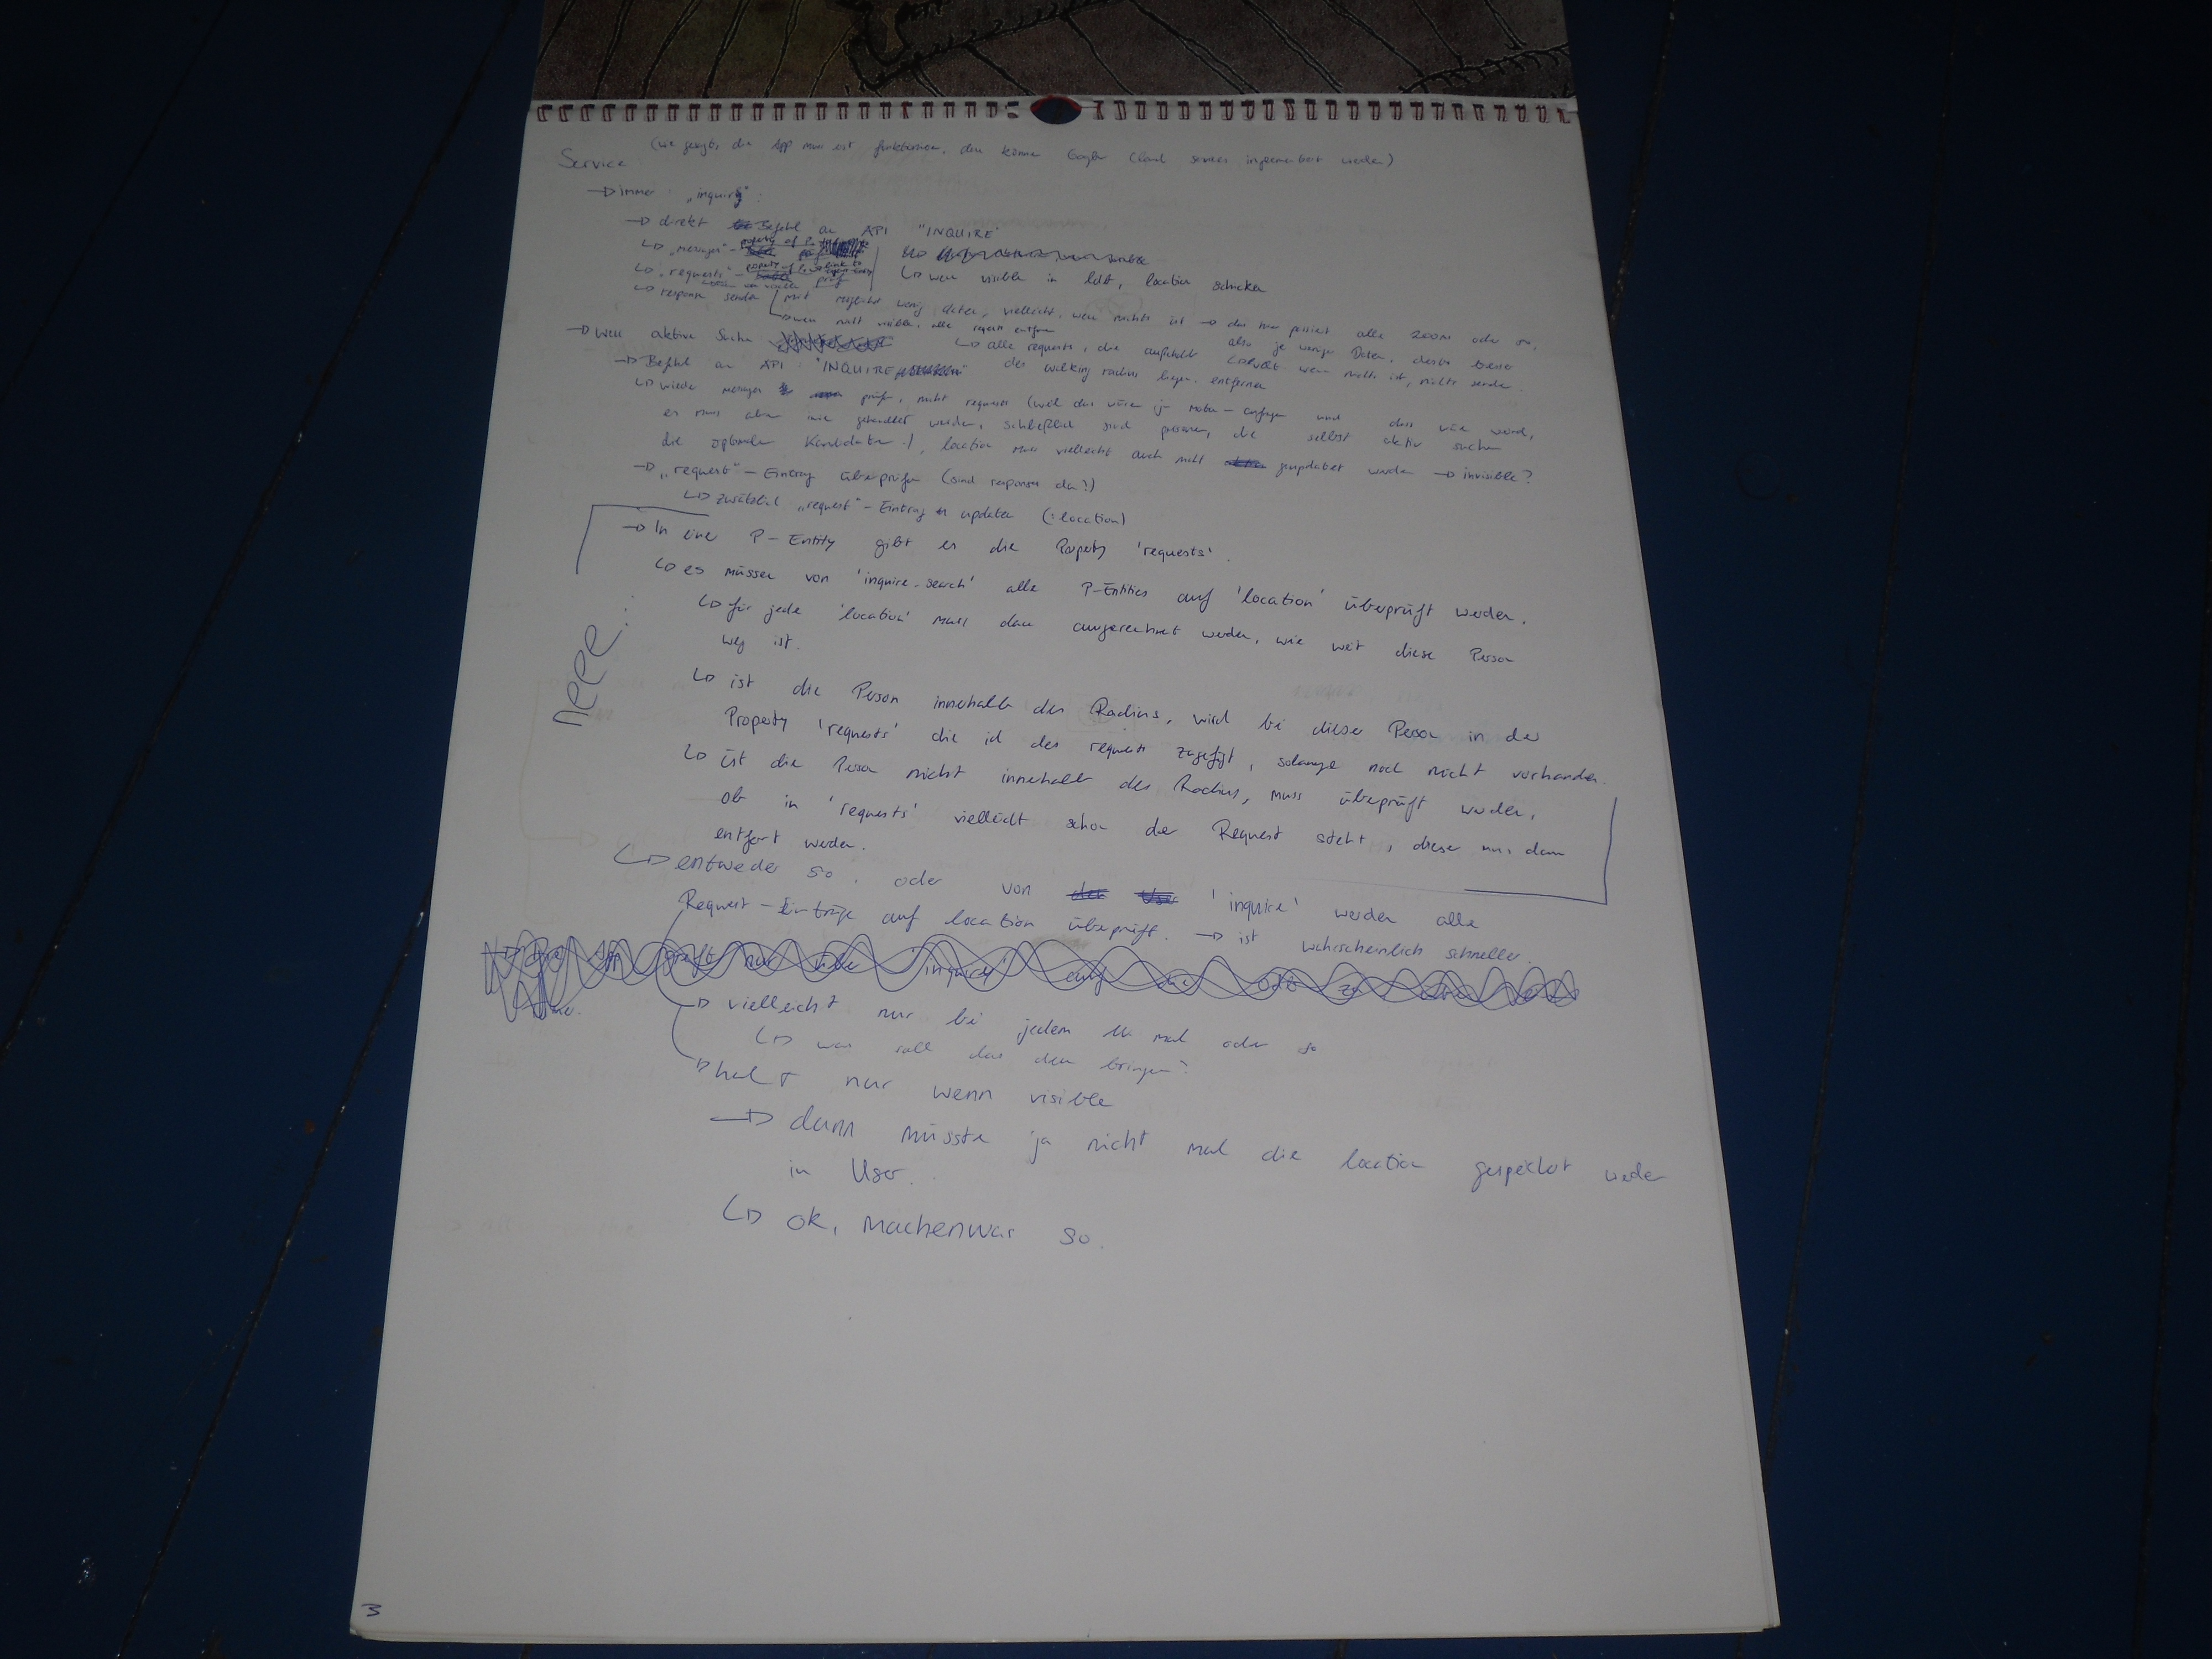 (wie gesagt, die App muss erst funktionieren, dann können Google Cloud services implementiert werden)
Service
→ immer: „inquiry":
→ direkt Befehl an API "INQUIRE"
↳ „messages" - property of P
↳ „requests" - property of P prüf
↳ wenn visible in letzt, location schicken
↳ response senden mit möglichst wenig daten, vielleicht, wenn nichts ist → das hier passiert alle 200m oder so,
also je weniger Daten, desto besser
↳ wenn nicht visible, alle requests entfernen
↳ vielt wenn nichts ist, nichts senden.
→ wenn aktive Suche
↳ alle requests, die außerhalb
des walking radius liegen, entfernen
→ Befehl an API: "INQUIRE
↳ wieder messages prüfen, nicht requests (weil das wäre ja und das wäre
es muss aber wie gehandelt werden, schließlich sind personen, die selbst aktiv suchen
die optimalen Kandidaten!), location muss vielleicht auch nicht geupdatet werden → invisible?
→ „request" - Eintrag überprüfen (sind responses da?)
↳ zusätzlich „request" - Eintrag updaten (:location)
→ In einer P-Entity gibt es die Property 'requests'.
↳ es müssen von 'inquire_search' alle P-Entities auf 'location' überprüft werden.
↳ für jede 'location' muss dann ausgerechnet werden, wie weit diese Person
weg ist.
neee..
↳ ist die Person innerhalb des Radius, wird bei dieser Person in der
Property 'requests' die id des requests zugefügt, solange noch nicht vorhanden.
↳ ist die Person nicht innerhalb des Radius, muss überprüft werden,
ob in 'requests' vielleicht schon der Request steht, dieser muss dann
entfert werden.
↳ entweder so, oder von 'inquire' werden alle
Request-Einträge auf location überprüft. → ist wahrscheinlich schneller.
→ vielleicht nur bei jedem mal oder so
↳ was soll das denn bringen?
→ halt nur wenn visible
→ dann müsste ja nicht mal die location gespeichert werden
in User.
↳ ok, machenwar so.
3